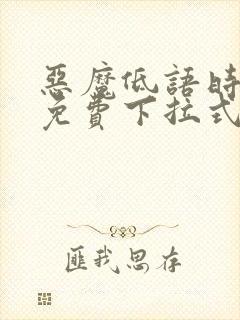 惡魔低語時
免費下拉式
匪我思存